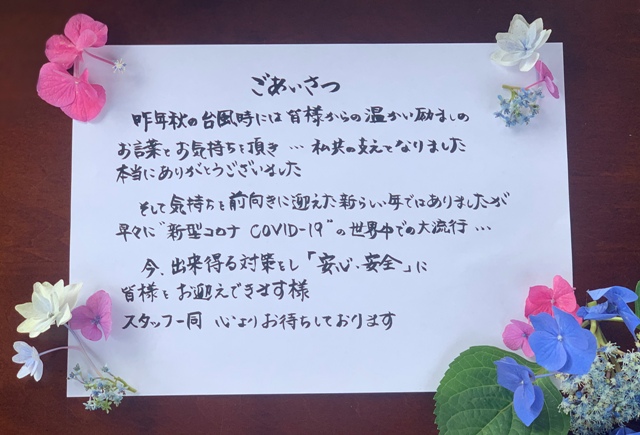 ごあいさつ
昨年秋の台風時には皆様からの温かい励ましの
お言葉とお気持ちを頂き…私共の支えとなりました
本当にありがとうございました
そして気持ちを前向きに迎えた新らしい年ではありましたが
早々に"新型コロナ COVID-19"の世界中での大流行…
今、出来得る対策をし「安心・安全」に
皆様をお迎えできます様
スタッフ一同 心よりお待ちしております